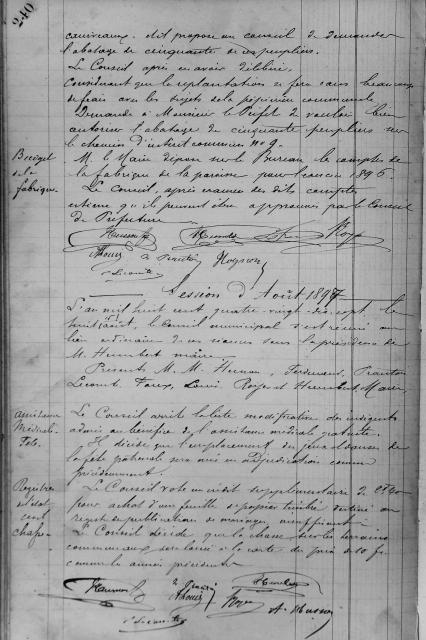 240
caniveaux. Il propose au conseil de demander
l'abatage de cinquante de ces peupliers.
Le Conseil après en avoir délibéré,
Considérant que la replantation se fera sans beaucoup
de frais avec les sujets de la pépinière communale
Demande à Monsieur le Préfet de vouloir bien
autoriser l'abatage de cinquante peupliers sur
le chemin d'intérêt commun no 9.
Budget
de la
fabrique
M. le Maire dépose sur le Bureau les comptes de
la fabrique de la paroisse pour l'exercice 1896.
Le Conseil, après examen des dits comptes
estime qu'ils peuvent être approuvés par le Conseil
de Préfecture
Session d'Août 1897
L'an mil huit cent quatre-vingt dix sept le
huit août, le Conseil municipal s'est réuni au
lieu ordinaire de ses séances sous la présidence de
M. Humbert maire.
Présents M. M.
Lecomte Louis Roye et Humbert Maire
assistance
Médicale
Fête
Le Conseil arrêt la liste modificative des indigents
admis au bénéfice de l'assistance médicale gratuite.
Il décide que l'emplacement du jeu et danse de
la fête patronale sera mis en adjudication comme
précédemment.
Registres
de l'état
civil
chasse
Le Conseil vote un crédit supplémentaire de
pour achat d'une feuille de papier timbré destiné au
registre de publications de mariages insuffisant
Le Conseil décide que la chasse sur les terrains
communaux sera louée à la carte au prix de 10 f.
comme les années précédentes